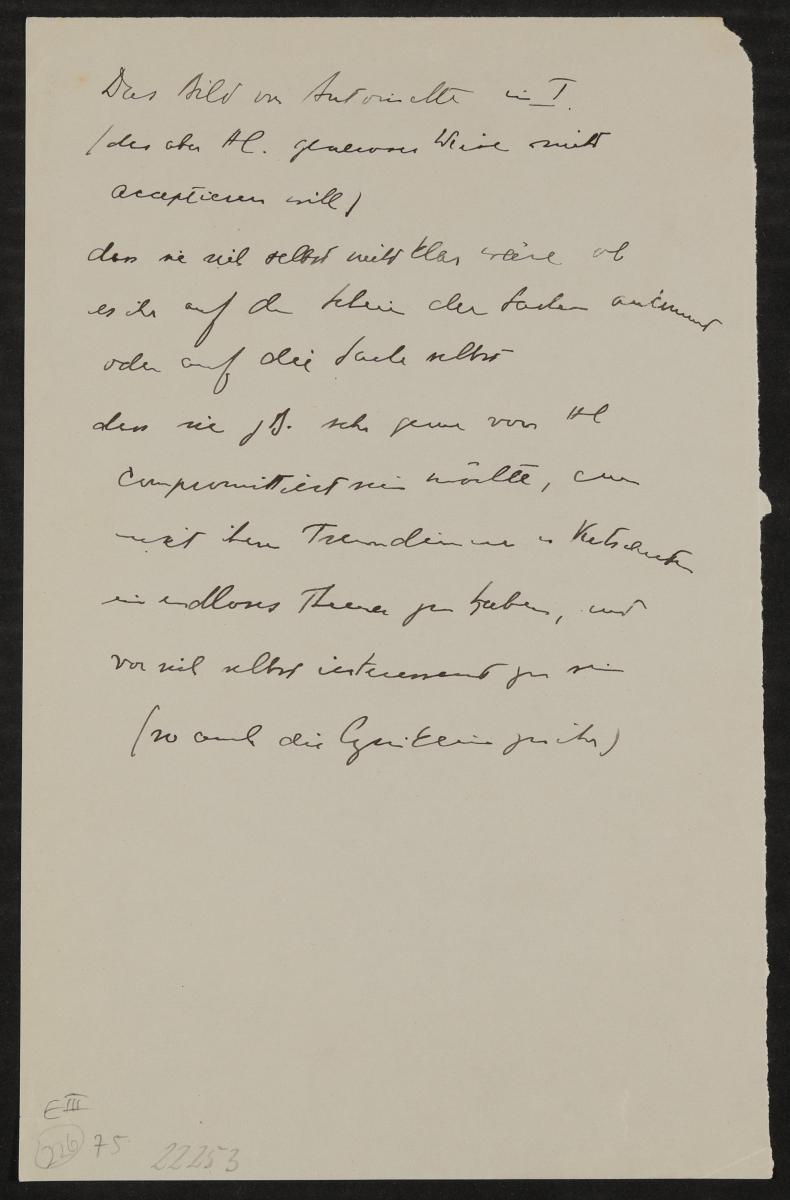 Das Bild von Antoinette in I.
(das aber HC. generoser Weise nicht
acceptieren will)
dass sie sich selbst nicht klar wäre ob
es ihr auf den Schein der Sachen ankommt
oder auf die Sache selbst
dass sie z B. sehr gerne von HC
compromittiert sein möchte, um
mit ihren Freundinnen u
ein endloses Thema zu haben, und
vor sich selbst interessant zu sein
(so auch die zu ihr)
E III
226 75 22253